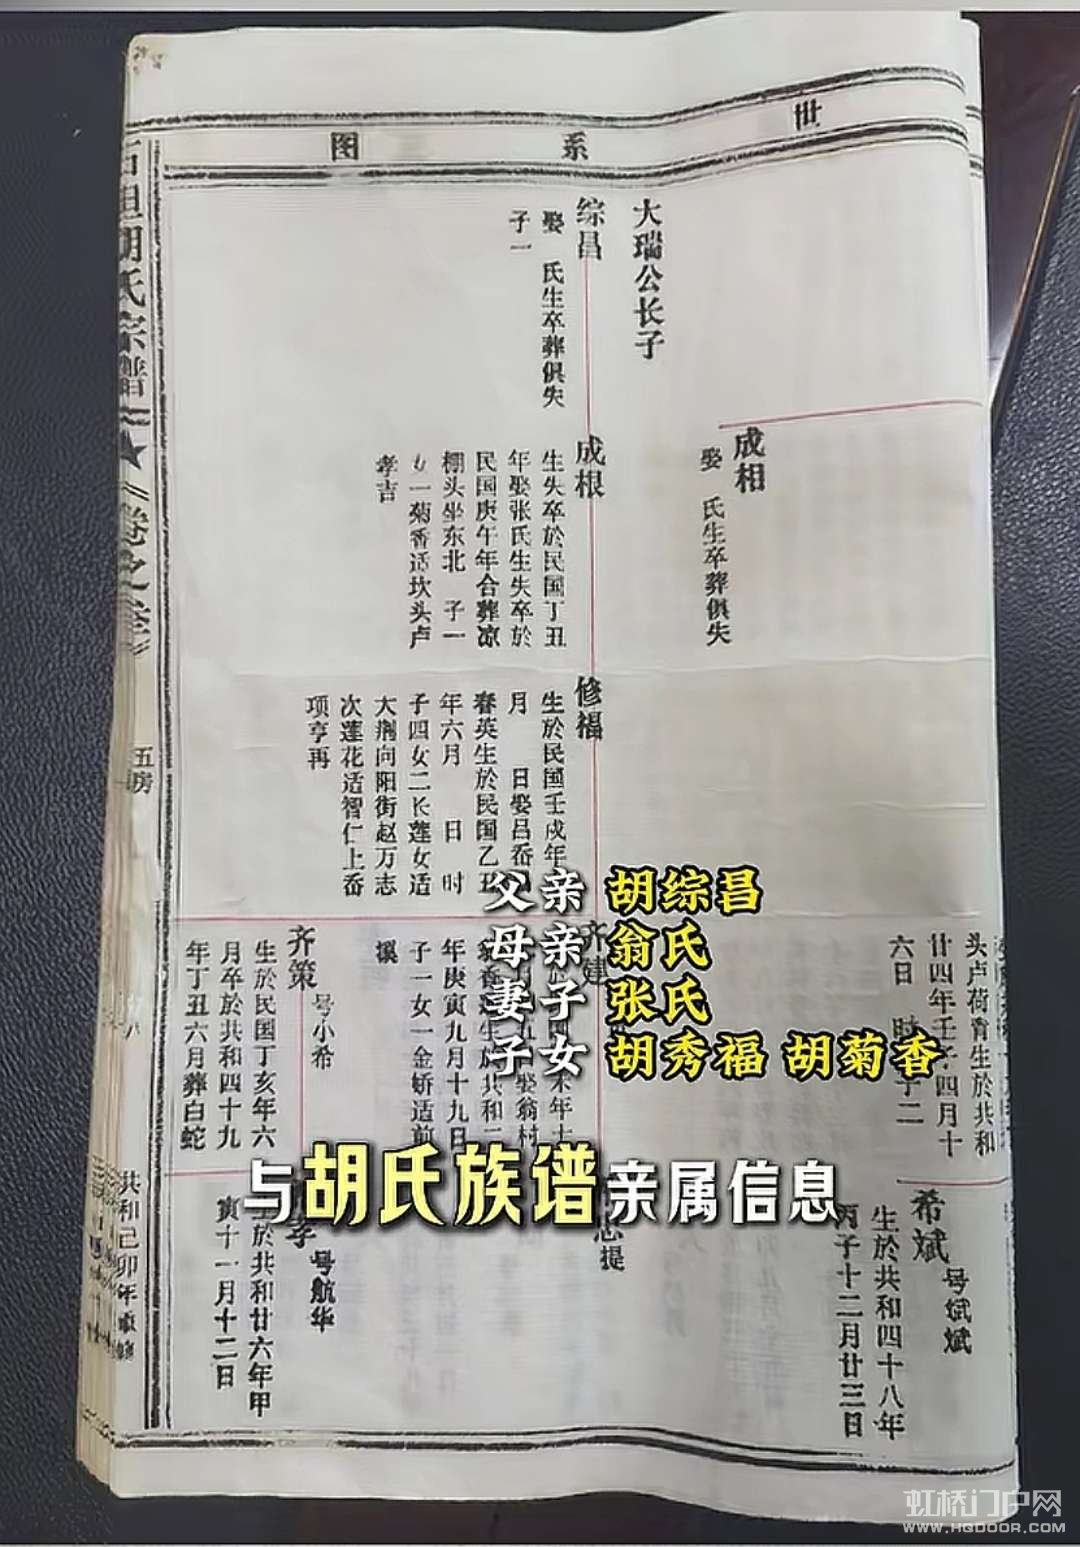 世系图
大瑞公长子
综昌
娶 氏生卒葬俱失
子一
成相
娶 氏生卒葬俱失
成根
生失卒於民国丁丑
年娶张氏生失卒於
民国庚午年合葬凉
棚头坐东北 子一
女一菊香适坎头卢
孝吉
修福
生於民国壬戌年
月 日娶吕岙
春英生於民国乙丑
年六月 日 时
子四女二长莲女适
大荆向阳街赵万志
次莲花适智仁上岙
项亨再
头卢荷青生於共和
廿四年壬子四月十
六日 时 子二
齐建
年庚寅九月十九日
子一女一金娇适前
溪
齐策
号小希
生於民国丁亥年六
月卒於共和四十九
年丁丑六月葬白蛇
希斌
号斌斌
生於共和四十八年
丙子十二月廿三日
号航华
於共和廿六年甲
寅十一月十二日
胡氏宗谱
卷之
五房
共和己卯年重修
父亲 胡综昌
母亲 翁氏
妻子 张氏
子女 胡秀福 胡菊香
与胡氏族谱亲属信息
虹桥门户网
WWW.HGDOOR.COM